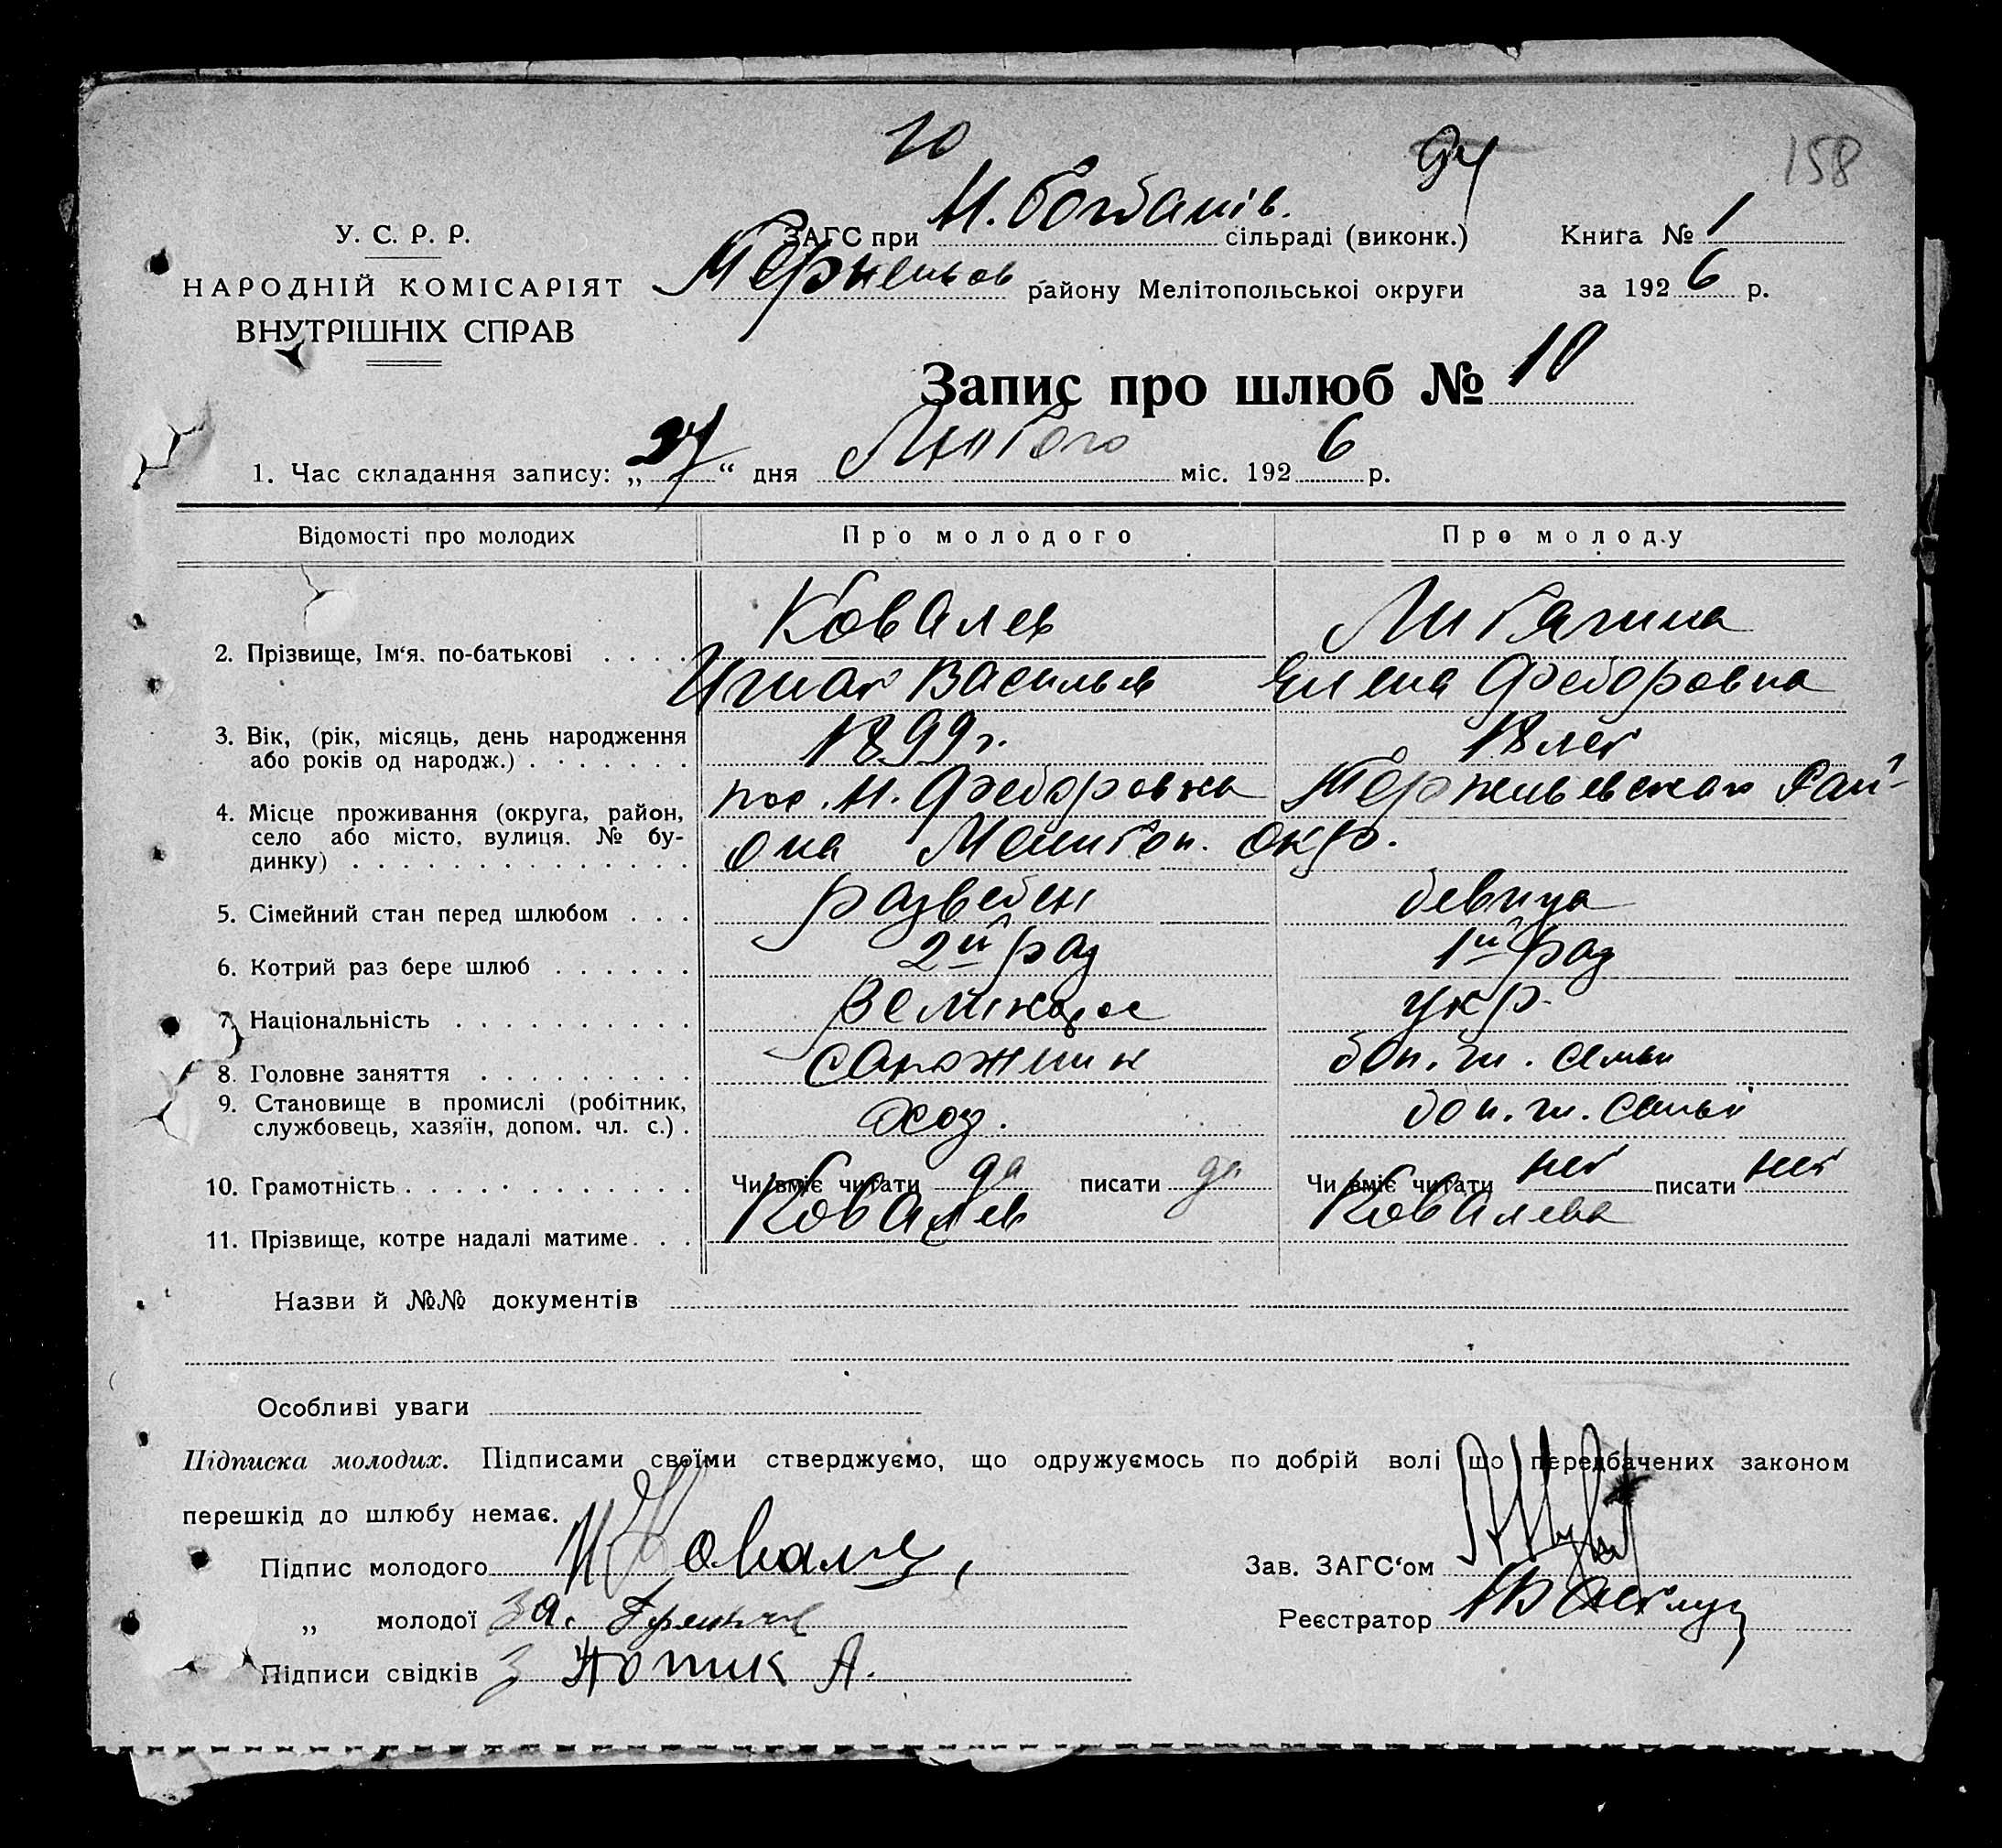 10
94
158
У. С. Р. Р.
НАРОДНІЙ КОМІСАРІЯТ
ВНУТРІШНІХ СПРАВ
ЗАГС при Н. Богданів. сільраді (виконк.)
Терпеньов району Мелітопольської округи
Книга № 1
за 1926 р.
Запис про шлюб № 10
1. Час складання запису: „27“ дня Лютого міс. 1926 р.
Відомості про молодих Про молодого Про молоду
2. Прізвище, Ім'я. по-батькові . . . .
Ковалев Литягина
Игнат Васильев Елена Федоровна
3. Вік, (рік, місяць, день народження або років од народж.) . . . . . . . 1899 г. 18 лет
4. Місце проживання (округа, район, село або місто, вулиця. № будинку) . . . . . . . . . . . . . .
пос. Н. Федоровка Терпеньевского Рай-
она Мелитоп. окр.
5. Сімейний стан перед шлюбом . . . разведен девица
6. Котрий раз бере шлюб . . . . . . 2й раз 1й раз
7. Національність . . . . . . . . . . . Великорос укр.
8. Головне заняття . . . . . . . . . сапожник доп. чл. семьи
9. Становище в промислі (робітник, службовець, хазяїн, допом. чл. с.) . хоз. доп. чл. семьи
10. Грамотність . . . . . . . . . . . . Чи вміє читати да писати да Чи вміє читати нет писати нет
11. Прізвище, котре надалі матиме. . . Ковалев Ковалева
Назви й №№ документів
Особливі уваги
Підписка молодих. Підписами своїми стверджуємо, що одружуємось по добрій волі що передбачених законом
перешкід до шлюбу немає.
Підпис молодого И Ковалев
Зав. ЗАГС'ом
„ молодої за.
Реєстратор
Підписи свідків А.